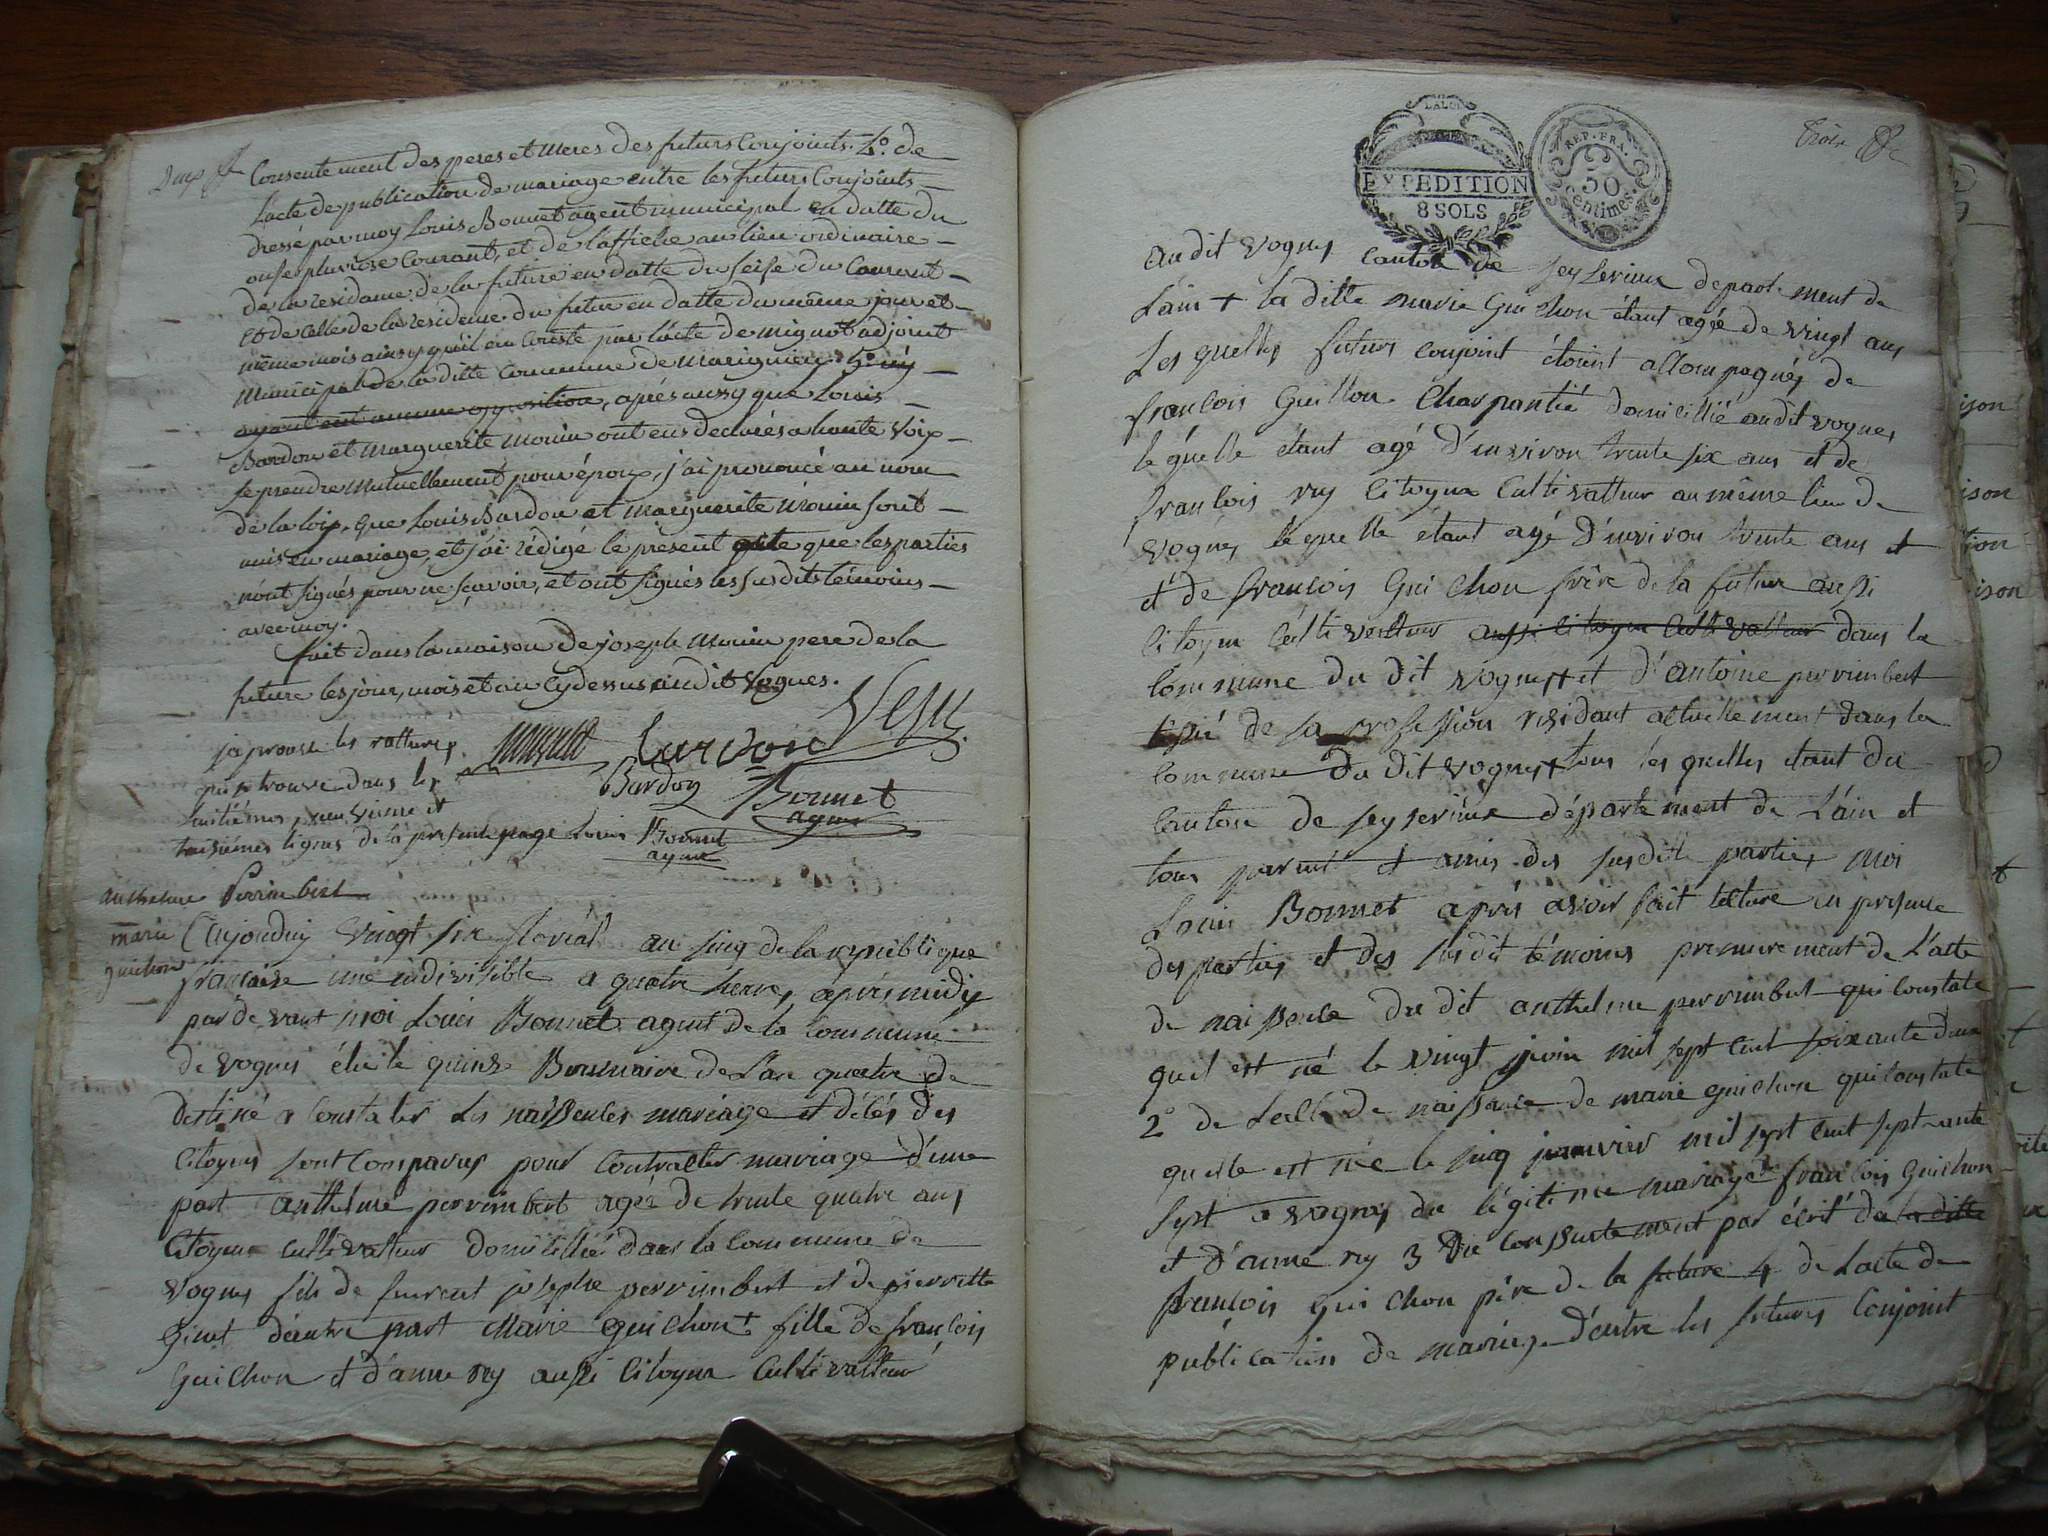 Consentement des peres et meres des futurs Conjoints. 4.º de
L'acte de publication de mariage entre les futurs Conjoints
dressé par moy Louis Bonnet agent municipal en datte du
onse pluviôse Courant, et de l'affiche au lieu ordinaire
de la residence de la future en datte du seise du Courant
et de celle de la residence du futur en datte du même jour et
même mois ainsy qu'il en Conste par l'acte de mignot adjoint
Municipal de la ditte Commune de Marignieu 5º n'y
ayant eut aucune opposition, après aussy que Louis
Bardon et Marguerite Monin ont eus declarés a haute Voix
se prendre Mutuellement pour époux, j'ai prononcé au nom
de la loix, que Louis Bardon et Marguerite Monin sont
unis en mariage, et j'ai rédigé le présent acte que les parties
n'ont signés pour ne sçavoir, et ont signés les susdits témoins
avec moy.
fait dans la maison de joseph Monin pere de la
future les jour, mois et an cy dessus audit Vognes.
japrouve les rattures
qui se trouve dans les
huitiémes, neuvieme et
treisiémes lignes de la presente page Louis Bonnet
agent
Bardon
Bonnet
agent
anthelme Perrimbert
marie
guichon
Aujourduy Vingt six floréal an sinq de la republique
francaise une indivisible a quatre heures après midy
par devant moi Louis Bonnet agent de la Commune
de vognes élu le quinze Brumaire de L'an quatre de
destiné a Constater les naissences mariage et décés des
Citoyens sont Comparus pour Contracter mariage d'une
part anthelme perrimbert agée de trente quatre ans
Citoyen cultivatteur domicillié dans la Commune de
vognes fils de josephe perrimbert et de pierrette
d'autre part Marie guichon + fille de françois
Guichon et d'anne rey aussi Citoyen Cultivatteur
DALOZ
EXPEDITION
8 SOLS
REP. FRA.
50
Centimes.
Trois
audit vognes canton de seyserieux departement de
Lain + la ditte marie Guichon étant agée de vingt ans
Les quelles futurs conjoint étoint accompagnés de
françois Guillon Charpantié domicillié audit vognes
le quelle étant agé d'environ trente six ans et de
francois rey Citoyen Cultivatteur au même lieu de
vognes le quelle étant agé d'environ trente ans et
et de francois Guichon frère de la future aussi
Citoyen Cultivatteur aussi Citoyen Cultivatteur dans la
Commune du dit vognes + et d'antoine perrimbert
de sa profession résidant actuellement dans la
Commune du dit vognes + tous les quelles étant du
Canton de seyserieux département de L'ain et
tous parent et amis des susdite parties moi
Louis Bonnet après avoir fait lecture en presence
des parties et des susdit témoins premierement de L'acte
de naissence du dit anthelme perrimbert qui Constate
quil est né le vingt juin mil sept cent soixante deux
2º de Lacte de naissance de marie guichon qui Constate
quelle est née le sinq janvier mil sept cent septante
sept a vognes du légitime mariage de francois Guichon
et d'anne rey 3 du Consentement par écrit de la ditte
francois Guichon père de la future 4 de Lacte de
publication de mariage d'entre les futures Conjoint